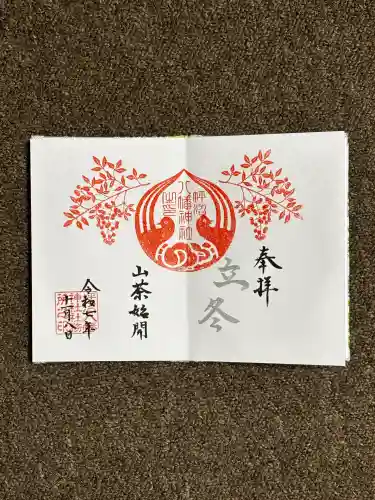 奉拝
立冬
八幡神社
山茶始開
令和七年
十一月八日